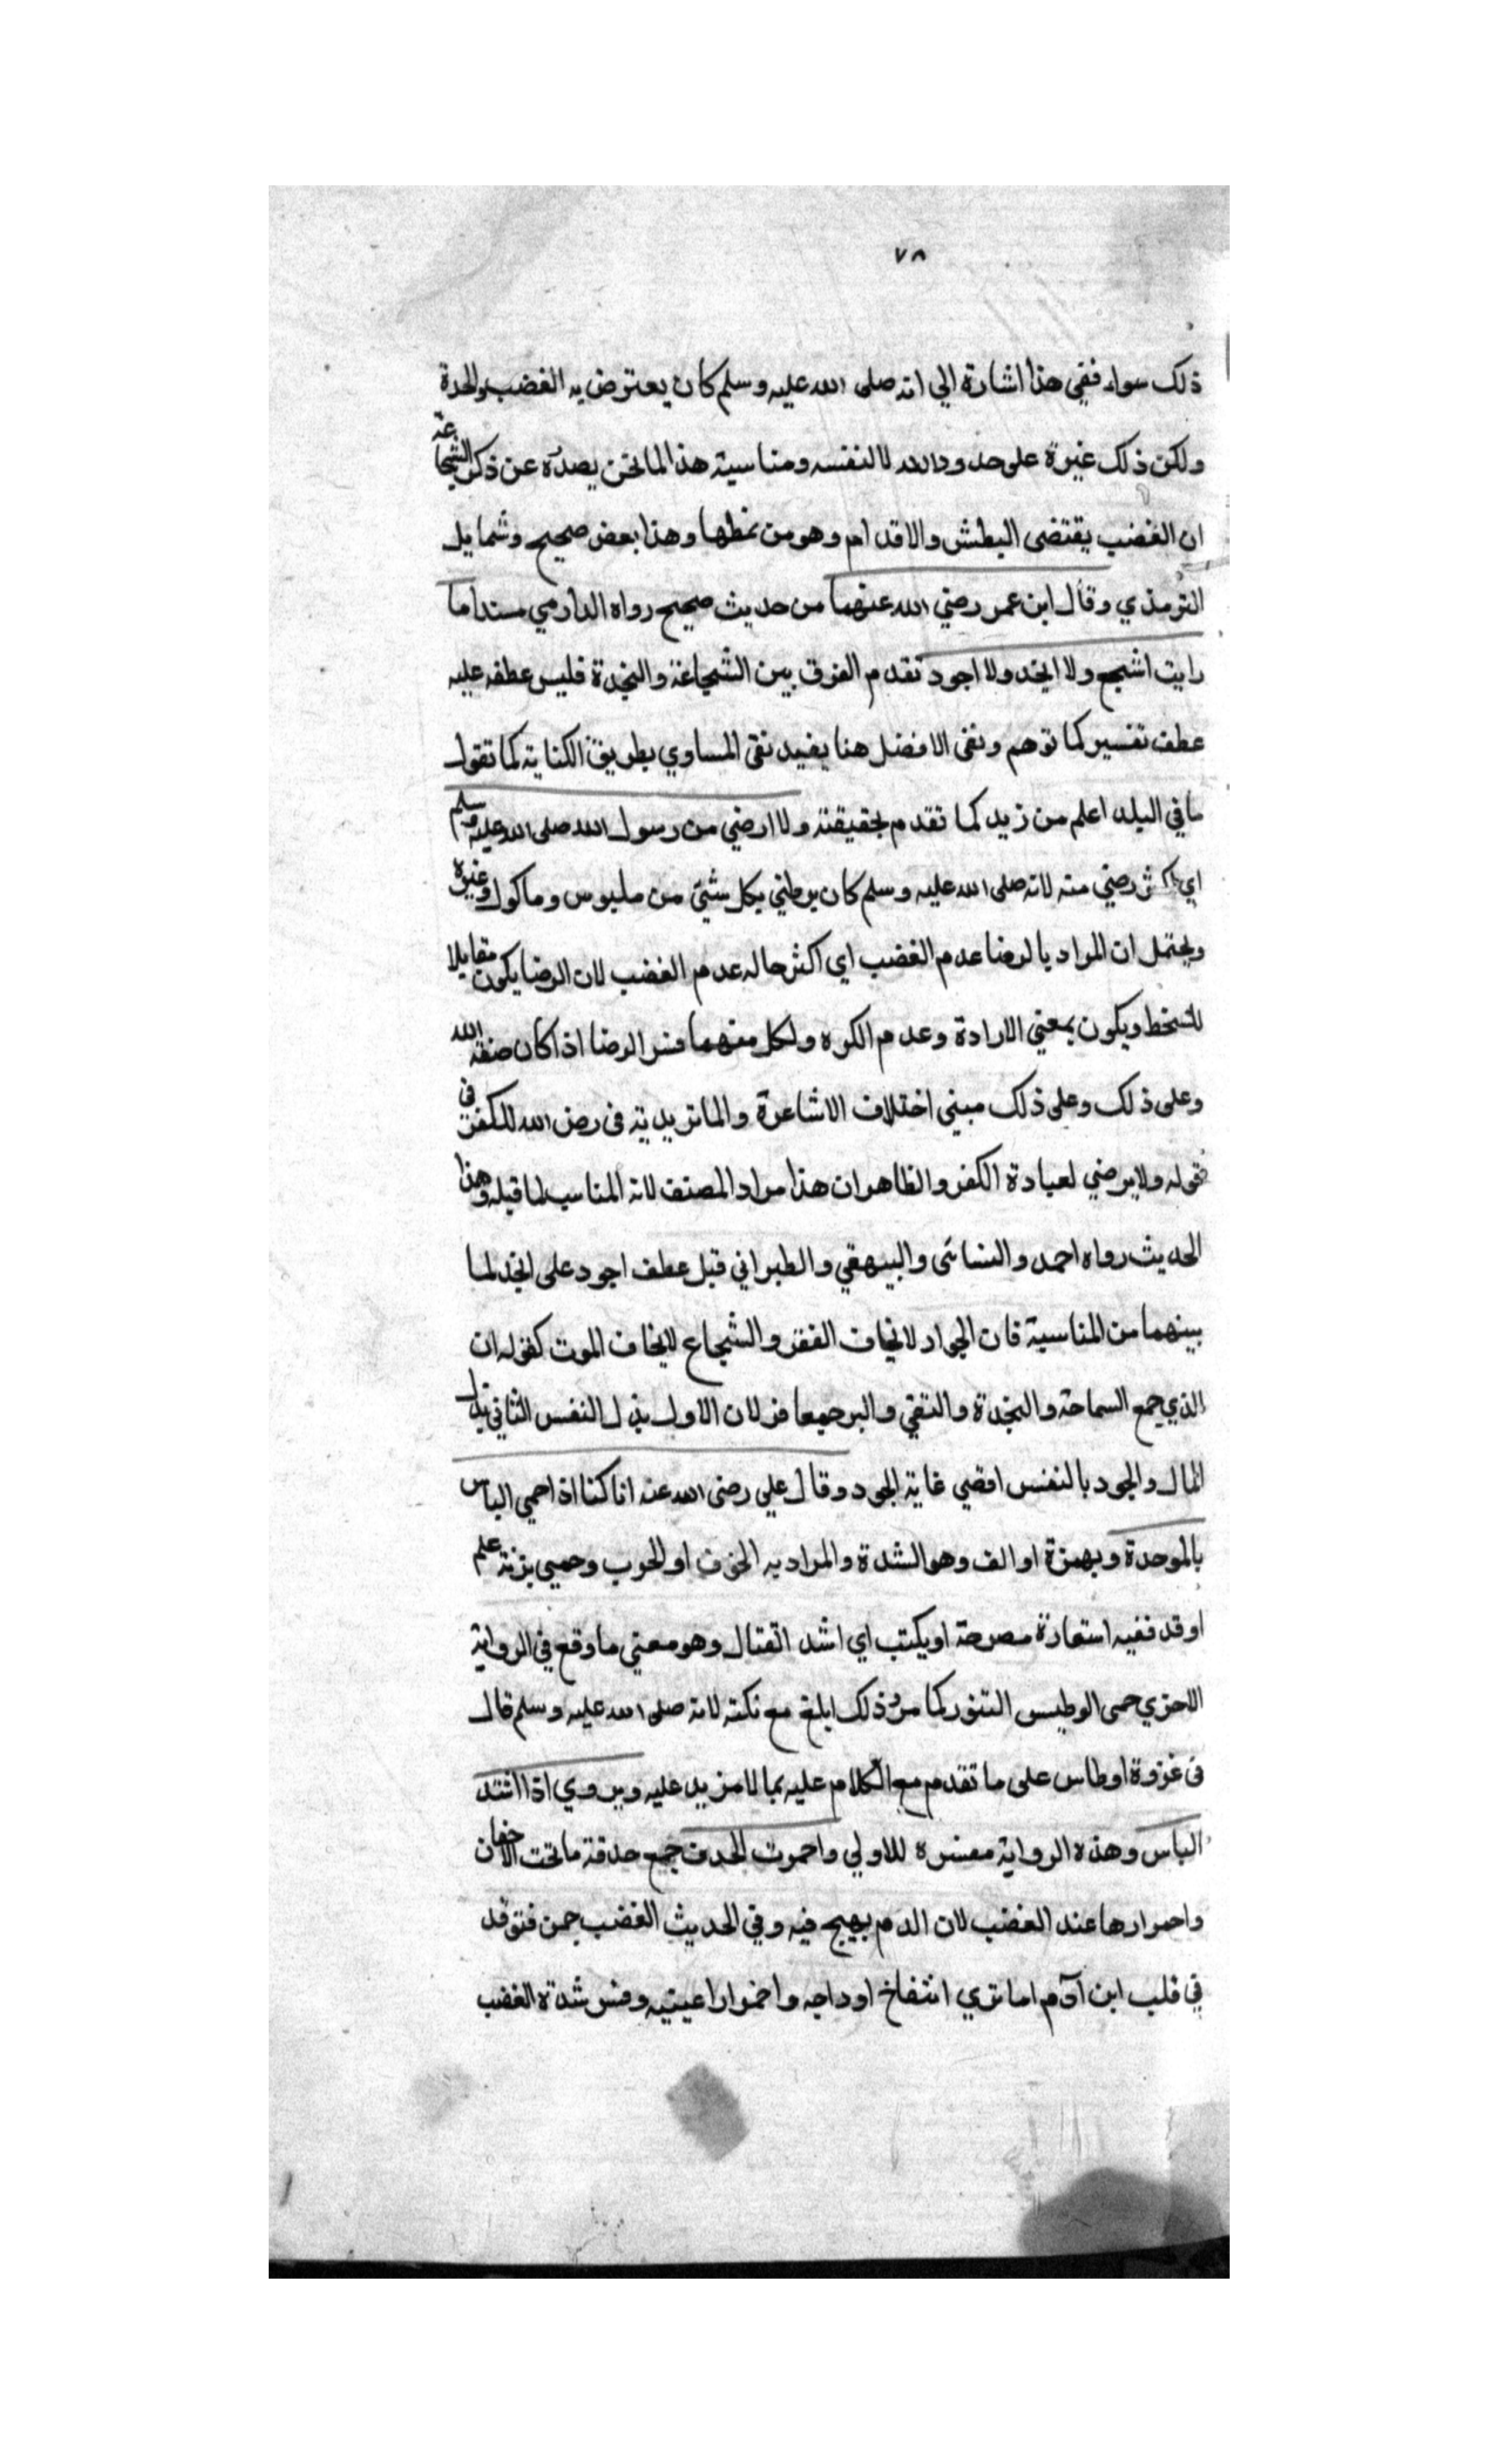 ٧٨
ذلك سواء ففي هذا اشارة الي انه صلى الله عليه وسلم كان يعترض به الغضب والحدة
ولكن ذلك غيرة على حدود الله لا لنفسه ومناسبة هذا لما نحن بصدده عن ذكر الشجاعة
ان الغضب يقتضى البطش والاقدام وهو من نمطها وهذا بعض صحيح وشمايل
الترمذي وقال ابن عمر رضي الله عنهما من حديث صحيح رواه الدارمي مسندا ما
رايت اشجع ولا انجد ولا اجود تقدم الفرق بين الشجاعة والنجدة فليس عطفه عليه
عطف تفسير كما توهم ونفى الافضل هنا يفيد نفى المساوي بطريق الكناية كما تقول
ما في البلد اعلم من زيد كما تقدم بحقيقته ولا ارضي من رسول الله صلى الله عليه وسلم
اي اكثر رضي منه لانه صلى الله عليه وسلم كان يرضي بكل شئ من ملبوس وماكول وغيره
ويحتمل ان المراد بالرضا عدم الغضب اي اكثر حاله عدم الغضب لان الرضا يكون مقابلا
للسخط ويكون بمعني الارادة وعدم الكره ولكل منهما فسر الرضا اذا كان صفة الله
وعلى ذلك وعلى ذلك مبني اختلاف الاشاعرة والماتريدية فى رضى الله للكفر في
قوله ولا يرضي لعبادة الكفر والظاهر ان هذا مراد المصنف لانه المناسب لما قبله وهذا
الحديث رواه احمد والنسائى والبيهقي والطبراني قبل عطف اجود على انجد لما
بينهما من المناسبة فان الجواد لا يخاف الفقر والشجاع لا يخاف الموت كقوله ان
الذي جمع السماحة والنجدة والتقي والبر جمعا فز لان الاول بذل النفس الثاني بذل
المال والجود بالنفس اقصي غاية الجود وقال علي رضى الله عنه انا كنا اذا حمي الباس
بالموحدة وبهمزة او الف وهو الشدة والمراد به الخوف او الحرب وحمي بزنة علم
اوقد ففيه استعارة مصرحة او يكتب اي اشد القتال وهو معني ما وقع في الرواية
الاخري حمى الوطيس التنور كما مر وذلك ابلغ مع نكتة لانه صلى الله عليه وسلم قال
فى غزوة اوطاس على ما تقدم مع الكلام عليه بما لا مزيد عليه ويروي اذا اشتد
الباس وهذه الرواية مفسرة للاولي واحمرت الحدق جمع حدقة ما تحت الاجفان
واحمرارها عند الغضب لان الدم يهيج فيه وفي الحديث الغضب جمرة توقد
في قلب ابن آدم اما تري انتفاخ اوداجه واحمرار عينيه وفسر شدة الغضب